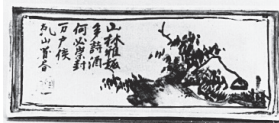 山林雅趣
多詩酒
何必當封
万戶侯